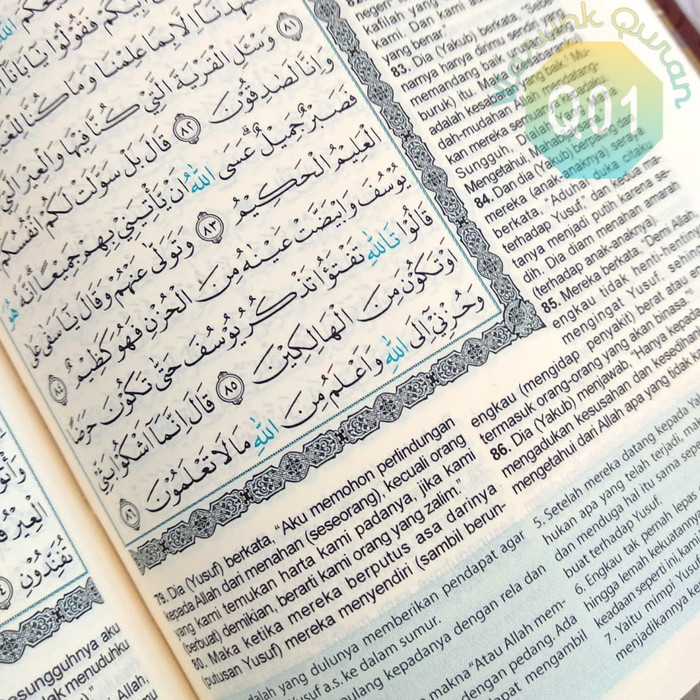 عَكُمْ
فَقُولُوا يَا أَبَانَا
وَسْئَلِ الْقَرْيَةَ الَّتِي كُنَّا فِيهَا وَالْعِيرَ الَّتِي
وَإِنَّا لَصَادِقُونَ ۝٨٢ قَالَ بَلْ سَوَّلَتْ لَكُمْ أَنْفُسُكُمْ
فَصَبْرٌ جَمِيلٌ عَسَى اللهُ أَنْ يَأْتِيَنِي بِهِمْ جَمِيعًا إِنَّهُ هُوَ
الْعَلِيمُ الْحَكِيمُ ۝٨٣ وَتَوَلَّى عَنْهُمْ وَقَالَ يَا أَسَفَى عَلَى
يُوسُفَ وَابْيَضَّتْ عَيْنَاهُ مِنَ الْحُزْنِ فَهُوَ كَظِيمٌ ۝٨٤
قَالُوا تَاللهِ تَفْتَؤُا تَذْكُرُ يُوسُفَ حَتَّى تَكُونَ حَرَضًا
أَوْ تَكُونَ مِنَ الْهَالِكِينَ ۝٨٥ قَالَ إِنَّمَا أَشْكُوا بَثِّي
وَحُزْنِي إِلَى اللهِ وَأَعْلَمُ مِنَ اللهِ مَا لَا تَعْلَمُونَ ۝٨٦
79. Dia (Yusuf) berkata, "Aku memohon perlindungan
kepada Allah dari menahan (seseorang), kecuali orang
yang kami temukan harta kami padanya, jika kami
(berbuat) demikian, berarti kami orang yang zalim."
80. Maka ketika mereka berputus asa darinya
(putusan Yusuf) mereka menyendiri (sambil berun-
negeri
kafilah yang
kami. Dan kami
yang benar."
83. Dia (Yakub) berkata, "Sebe-
narnya hanya dirimu sendiri yang
memandang baik urusan (yang
buruk) itu. Maka
adalah kesabaran yang baik. Mu-
dah-mudahan Allah mendatang-
kan mereka semuanya kepadaku.
Sungguh,
Mengetahui, Mahabijaksana."
84. Dan dia (Yakub) berpaling dari
mereka (anak-anaknya) seraya
berkata, "Aduhai duka citaku
terhadap Yusuf," dan kedua ma-
tanya menjadi putih karena se-
dih. Dia diam menahan amarah
(terhadap anak-anaknya).
85. Mereka berkata, "Demi Allah,
engkau tidak henti-hentinya
mengingat Yusuf, sehingga
engkau (mengidap penyakit) berat atau
termasuk orang-orang yang akan binasa."
86. Dia (Yakub) menjawab, "Hanya kepada
mengadukan kesusahan dan kesedihanku
mengetahui dari Allah apa yang tidak
adalah yang dulunya memberikan pendapat agar
Yusuf a.s. ke dalam sumur.
pulang kepadanya dengan rela dan
makna "Atau Allah mem-
dengan pedang. Ada
dapat mengambil
5. Setelah mereka datang kepada Ya
hukan apa yang telah terjadi,
dan menduga hal itu sama sepe
buat terhadap Yusuf.
6. Engkau tak pernah lepas
hingga lemah kekuatan
keadaan seperti ini, kami
7. Yaitu mimpi Yusuf
menjadikannya
تُفَنِّدُونِ
esungguhnya aku
dak menuduhku
Allah,
Q01
Quran